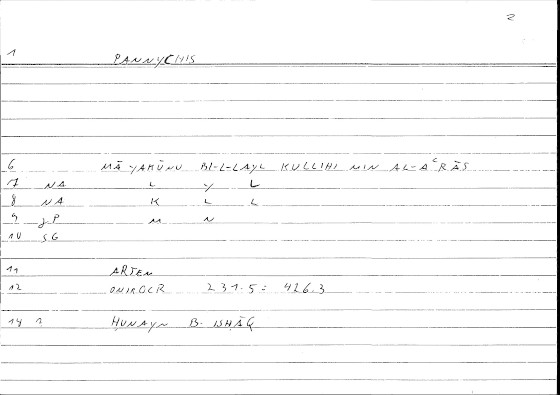 2
1 PANNYCHIS
6 MĀ YAKŪNU BI-L-LAYL KULLIHI MIN AL-AʿRĀS
7 NA L Y L
8 NA K L L
9 JP M N
10 SG
11 ARTEM
12 ONIROCR 231.5 = 426.3
14 1 ḤUNAYN B. ISḤĀQ